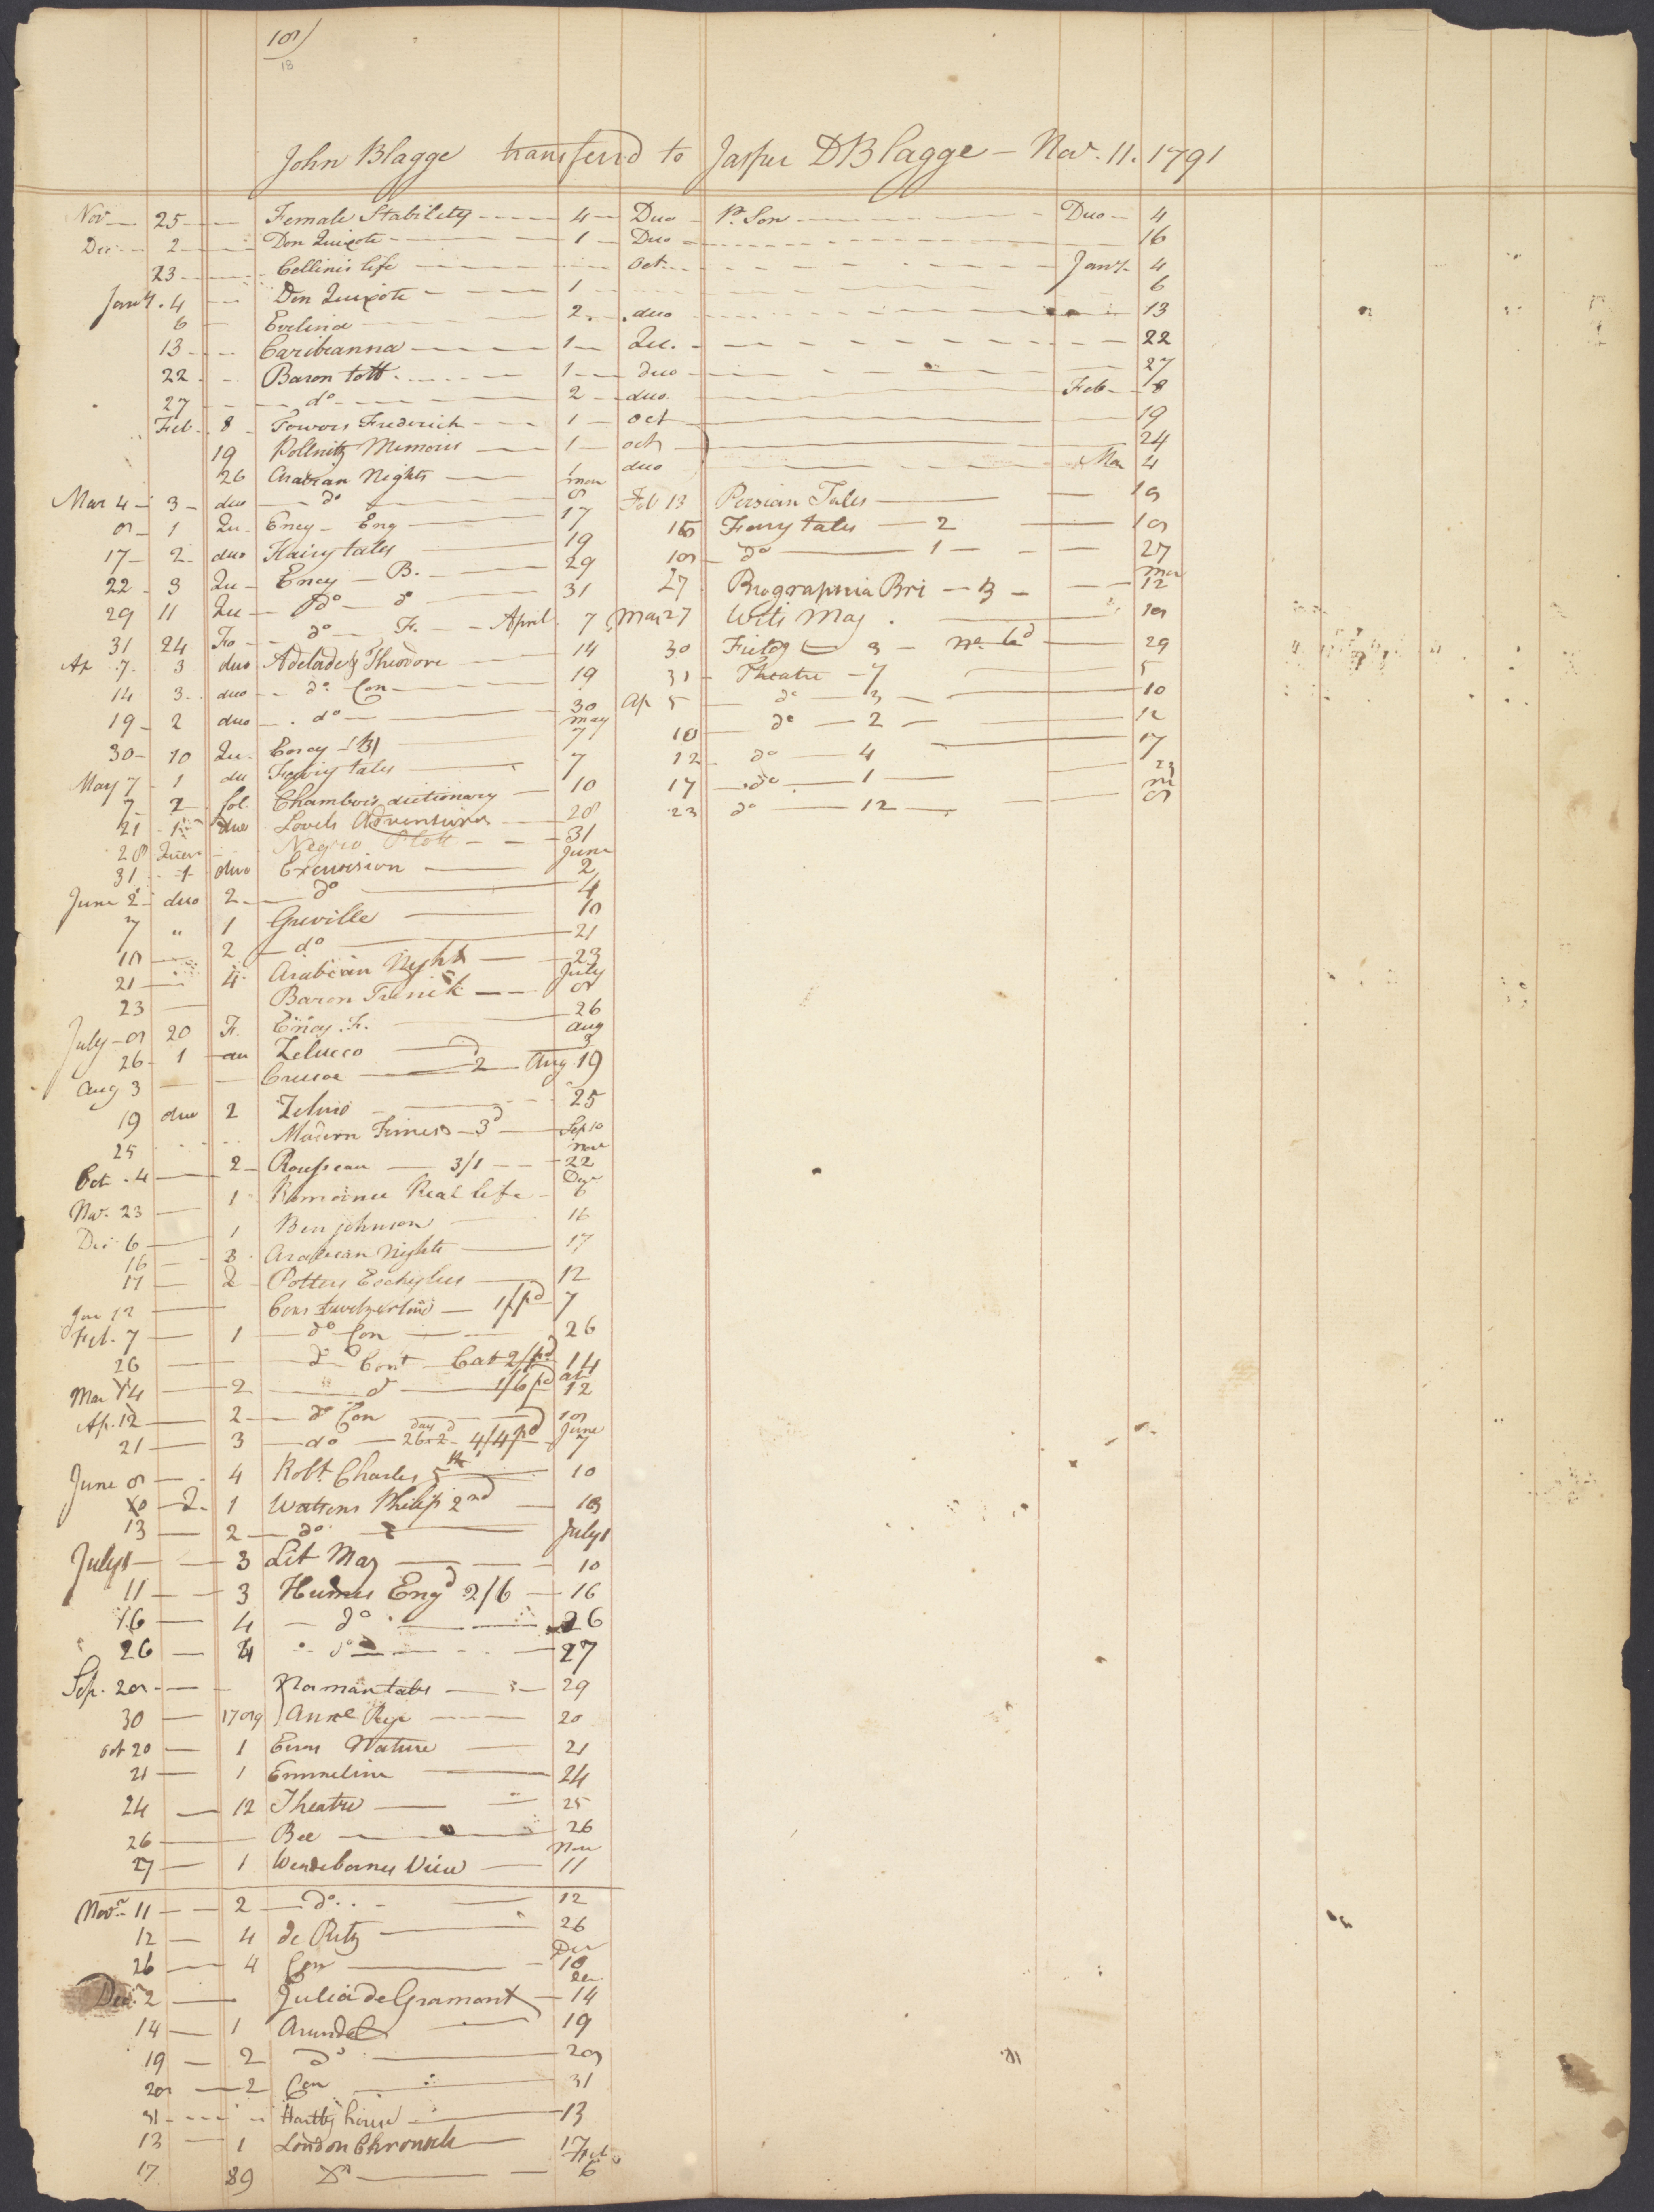 18
John Blagge transferd to Jasper D Blagge - Nov. 11. 1791
Nov 25 Female Stability 4 Duo Pr. Son Duo 4
Dec 2 Don Quixote 1 Duo 16
23 Cellinis life Oct. Jany. 4
Jany. 4 Don Quixote 1 6
6 Evelina 2 duo 13
13 Caribeanna 1 Qu. 22
22 Baron tott 1 duo 27
27 do 2 duo Feb 8
Feb. 8 Towers Frederick 1 Oct 19
19 Pollnitz Memoirs 1 oct 24
26 Arabian Nights 1 duo Mar 4
Mar 4 3 duo do Mar 8 Feb 13 Persian Tales 18
8 1 Qu. Ency - Eng 17 15 Fairy tales 2 18
17 2 duo Fairy tales 19 18 do 1 27
22 3 Qu Ency - B. 29 27 Biographia Bri 3 Mar 12
29 11 Qu do do 31 Mar 27 Wits Mag 18
31 24 Fo do Fr. April 7 30 3 29
Ap 7 3 duo Adelade & Theodore 14 31 Theatre 7 5
14 3 duo do Con 19 Ap 5 do 3 10
19 2 duo do 30 10 do 2 12
30 10 Qu. Ency may 7 12 do 4 17
May 7 1 du Fairy tales 7 17 do 1 23
7 2 fol. Chambers dictionary 10 23 do 12 m 8
21 1 duo Lovels Adventures 28
28 Negro 31
31 1 duo Excursion June 2
June 2 duo 2 do 4
7 " 1 Greville 10
10 2 do 21
21 4 Arabian Nights 23
23 Baron Trenck July 8
July 8 20 Fr. Ency. Fr. 26
26 1 du Zelucco aug 3
Aug 3 Crusoe 2 Aug. 19
19 duo 2 Zeluco 25
25 Modern Times 3d Sep 10
Oct. 4 2 Rousseau 3/1 Nov 22
Nov. 23 1 Romance Real life Der 6
Dec 6 1 Ben johnson 16
16 3 Arabian Nights 17
17 2 Potters Eschylus 12
Jan 12 Coxs Switzerland 1/ pd 7
Feb. 7 1 do Con 26
26 do Cont Cat 2/ pd 14
Mar 14 2 do 1/6 pd ap 12
Ap. 12 2 do Con 18
21 3 do day 26.2d 4/4 pd June 7
June 8 4 Robt. Charles 5th 10
10 2 1 Watsons Philip 2nd 13
13 2 do July 1
July 1 3 Lit Mag 10
11 3 Humes Engd 2/6 16
16 4 do 26
26 4 do 27
Sep. 28 Norman tales 3 29
30 1789 Annl Regr 20
Oct 20 1 Errors Nature 21
21 1 Emmeline 24
24 12 Theatre 25
26 Bee 26
27 1 Wendebornes View Nov 11
Novr. 11 2 do 12
12 4 de Retz 26
26 4 Con Der 10
Dec. 2 Julia de Gramont Der 14
14 1 Arundel 19
19 2 do 28
28 2 Con 31
31 Hartly house 13
13 1 London Chronicle 17
17 89 Do Feb 6